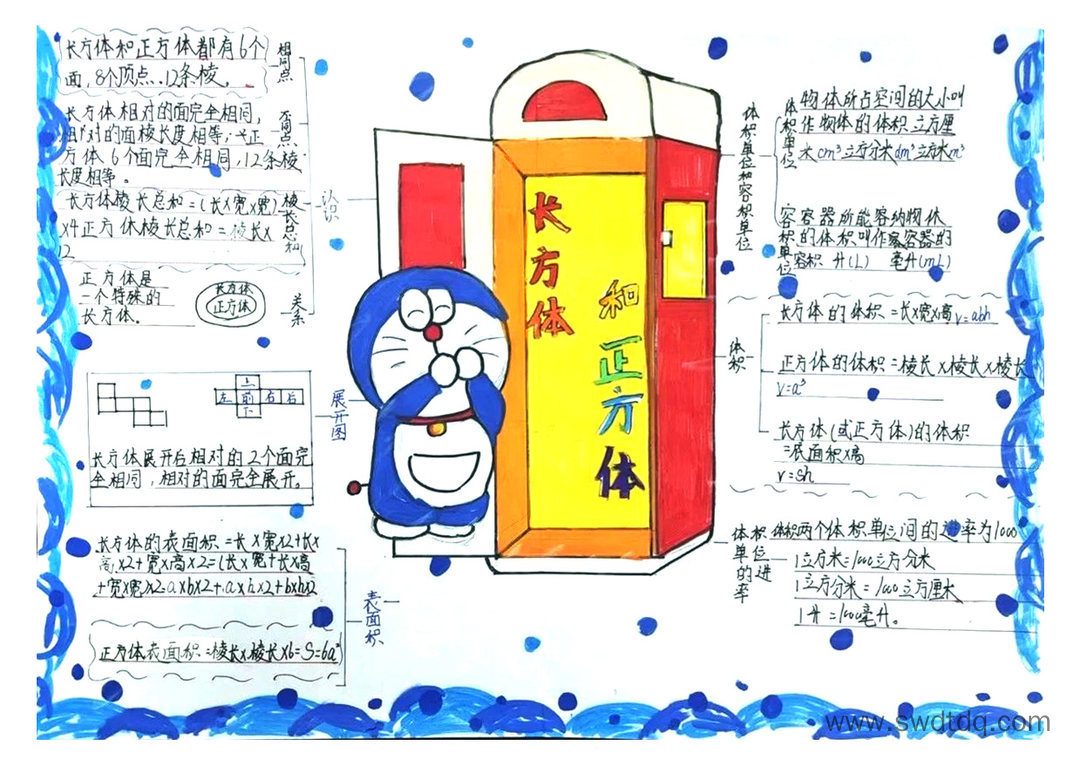 长方体和正方体都有6个
面,8个顶点,12条棱。
相同点
长方体相对的面完全相同,
相对的面棱长度相等;正
方体6个面完全相同,12条棱
长度相等。
不同点
长方体棱长总和=(长×宽×宽)
×4正方体棱长总和=棱长×
12
棱长总和
正方体是
一个特殊的
长方体。
长方体
正方体
关系
认识
上
左 前 右 右
下
长方体展开后相对的2个面完
全相同,相对的面完全展开。
展开图
长方体的表面积=长×宽×2+长×
高×2+宽×高×2=(长×宽+长×高
+宽×宽)×2=a×b×2+a×h×2+b×h×2
正方体表面积=棱长×棱长×6=S=6a²
表面积
长方体
和正方体
体积单位和容积单位
体积单位
物体所占空间的大小叫
作物体的体积立方厘
米cm³立方分米dm³立方米m³
容积单位
容器所能容纳物体
的体积叫作容器的
容积 升(L) 毫升(mL)
体积
长方体的体积=长×宽×高V=abh
正方体的体积=棱长×棱长×棱长
V=a³
长方体(或正方体)的体积
=底面积×高
V=Sh
体积单位的进率
两个体积单位间的进率为1000
1立方米=1000立方分米
1立方分米=1000立方厘米
1升=1000毫升。
www.swdtdq.com